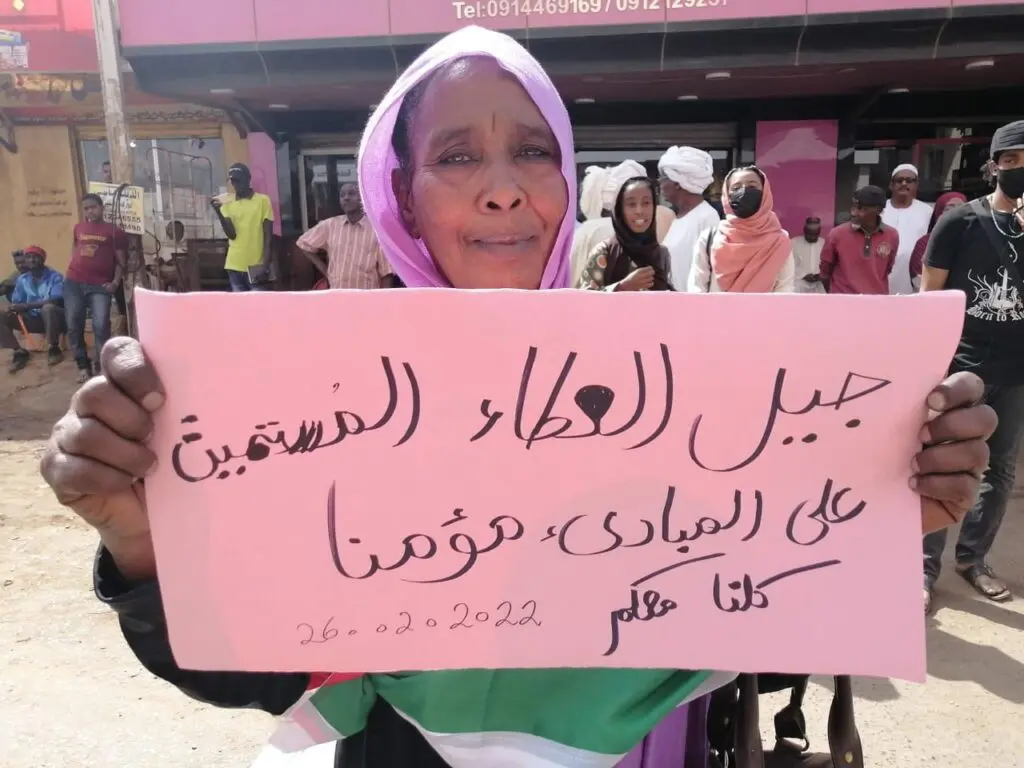 Tel:0914469169 /
جيل العطاء المُستميت
على المبادىء مؤمنا
كلنا معكم
26.02.2022
Born to